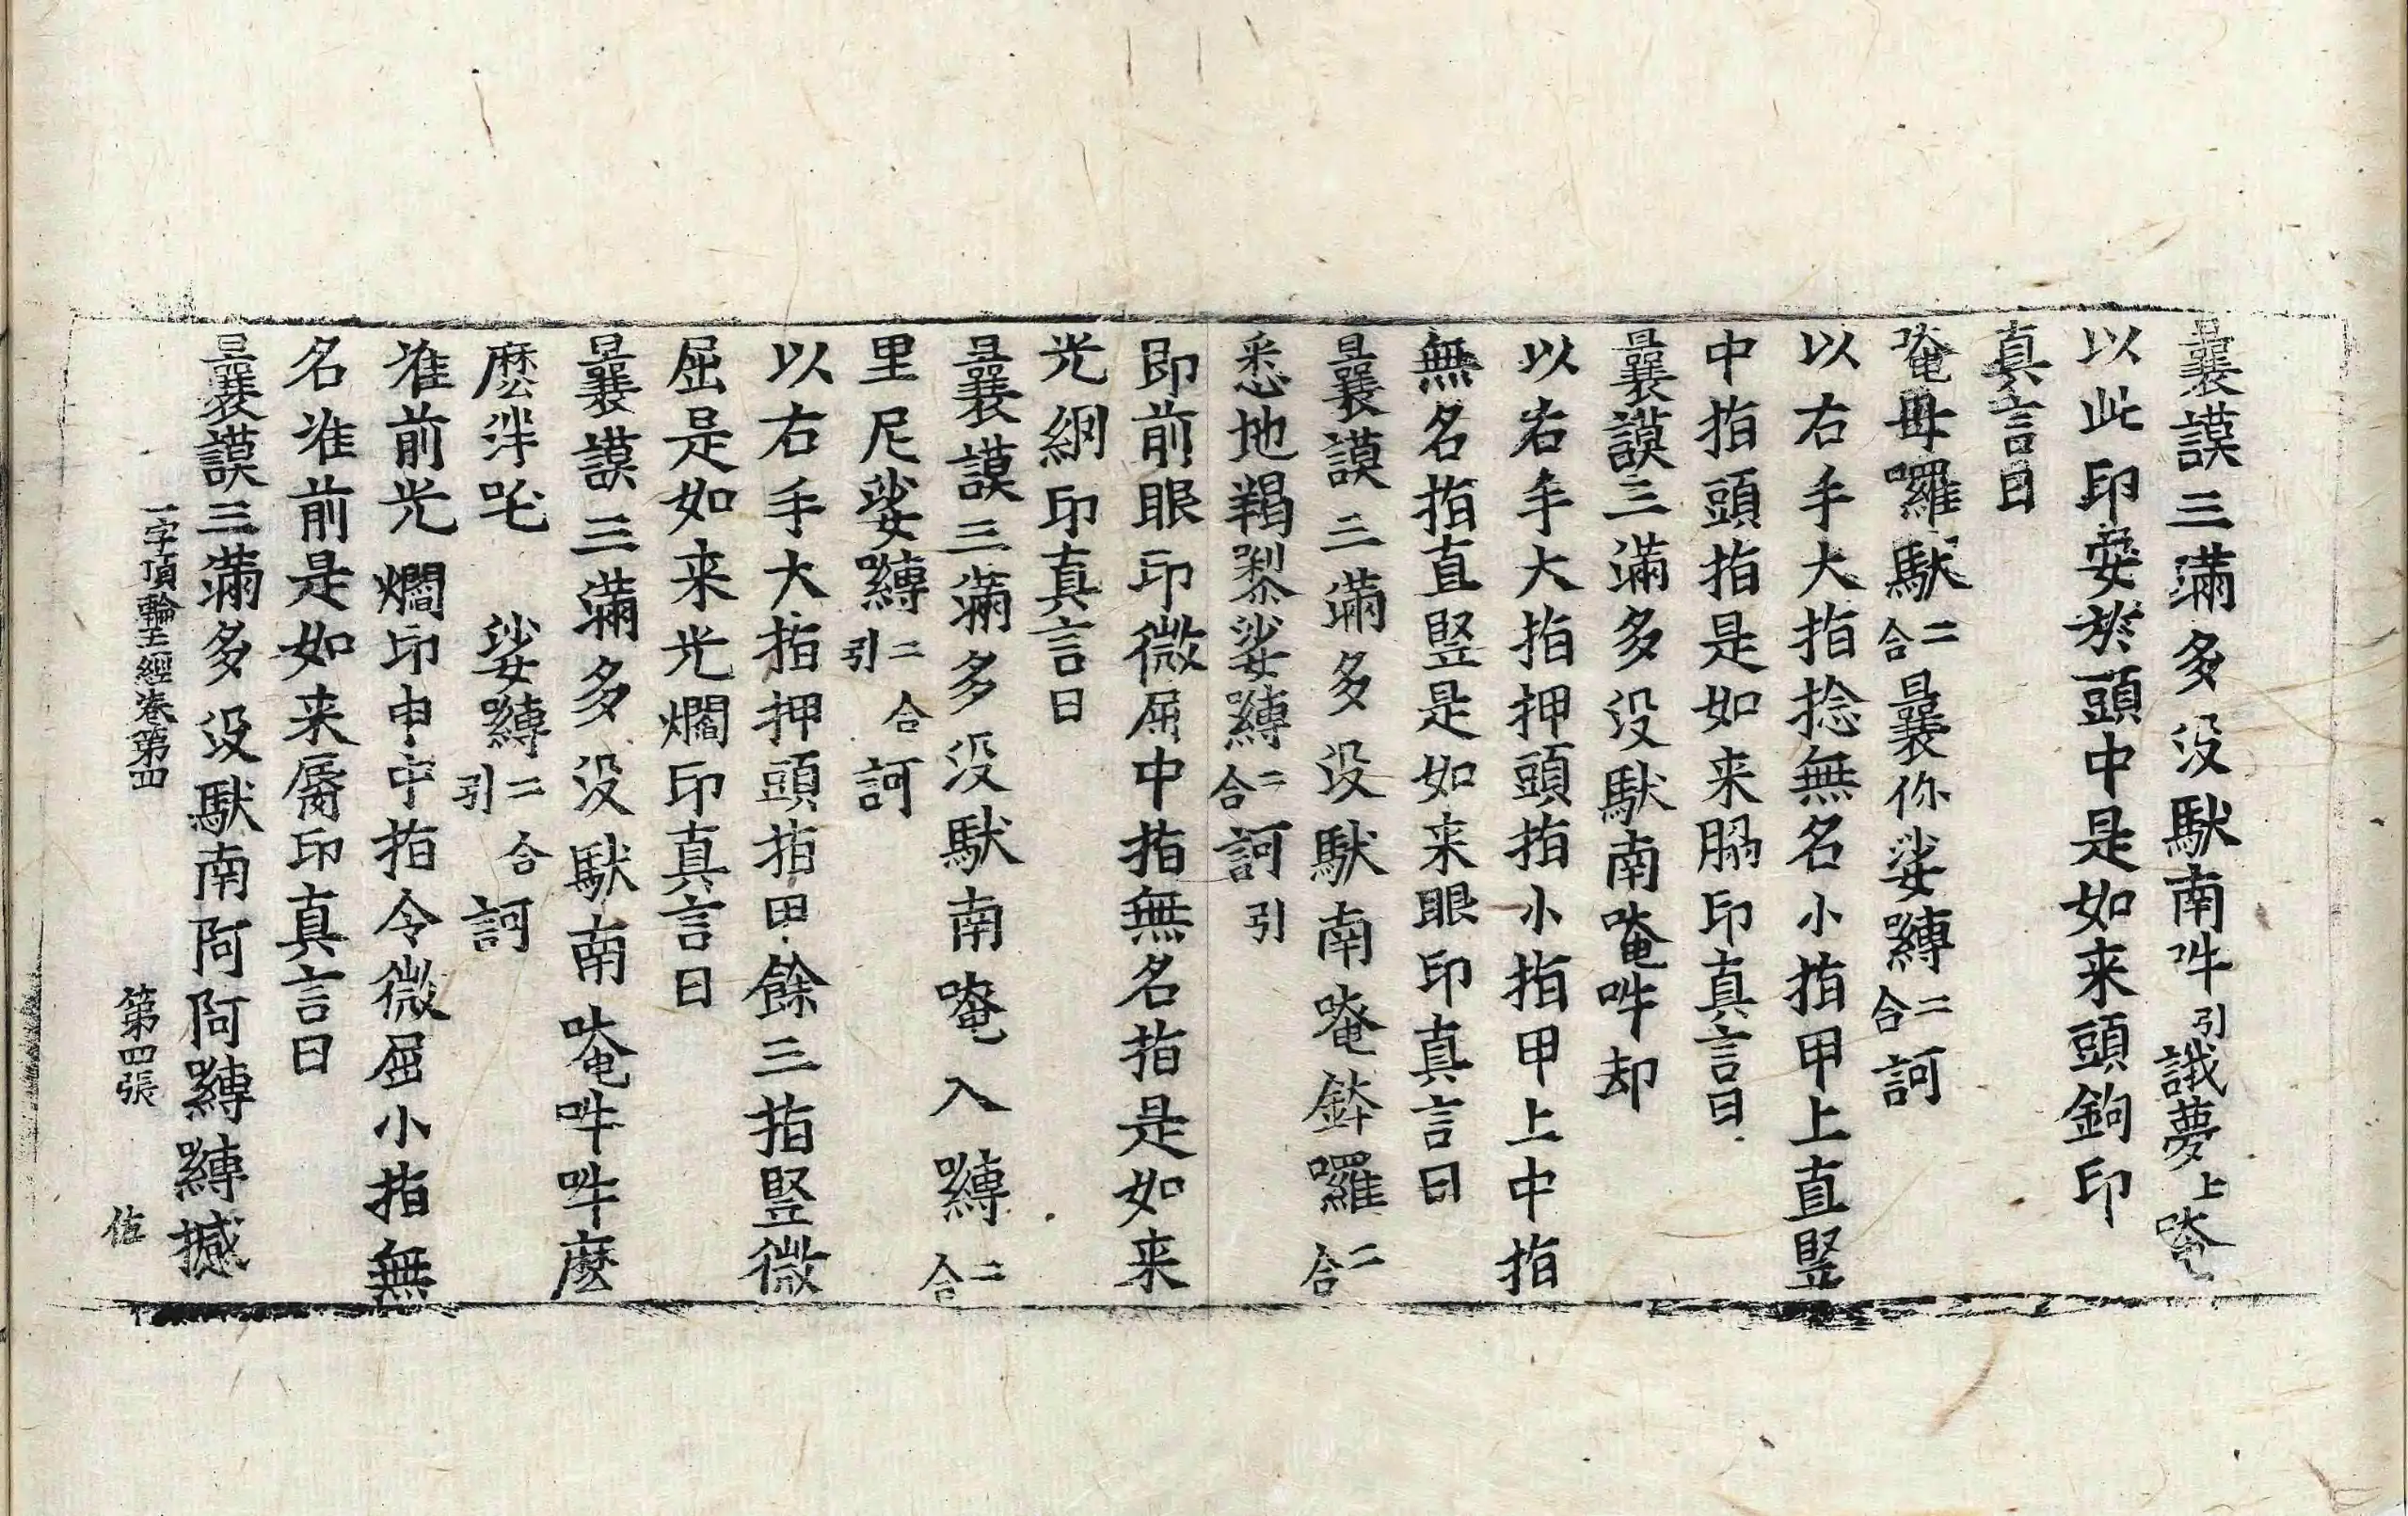 曩謨三滿多没馱南吽引誐夢上唵
以此印安於頭中是如来頭鉤印
真言曰
唵母囉馱二合曩你娑嚩二合訶
以右手大指捻無名小指甲上直豎
中指頭指是如来𦙶印真言曰
曩謨三滿多没馱南唵吽却
以右手大指押頭指小指甲上中指
無名指直豎是如来眼印真言曰
曩謨三滿多没馱南唵鉢囉二合
悉地羯㗚娑嚩二合訶引
即前眼印微屈中指無名指是如来
光網印真言曰
曩謨三滿多没馱南唵入嚩二合
里尼娑嚩二合引訶
以右手大指押頭指甲餘三指豎微
屈是如来光爓印真言曰
曩謨三滿多没馱南唵吽吽麽
麽泮吒 娑嚩二合引訶
准前光爓印申中指令微屈小指無
名准前是如来脣印真言曰
曩謨三滿多没馱南阿阿嚩嚩撼
一字頂輪王經卷第四 第四張 佐